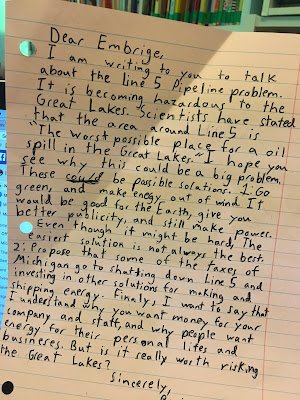 Dear Embrige,
I am writing to you to talk
about the line 5 Pipeline problem.
It is becoming hazardous to the
Great Lakes. Scientists have stated
that the area around Line 5 is
"The worst possible place for a oil
spill in the Great Lakes." I hope you
see why this could be a big problem.
These could be possible solutions. 1: Go
green, and make energy out of wind. It
would be good for the Earth, give you
better publicity, and still make power.
Even though it might be hard, The
easiest solution is not always the best.
2: Propose that some of the taxes of
Michigan go to shutting down Line 5 and
investing in other solutions for making and
shipping energy. Finaly, I want to say that
I understand why you want money for your
company and staff, and why people want
energy for their personal lifes and
busineses. But is it really worth risking
the Great Lakes?
Sincerely,